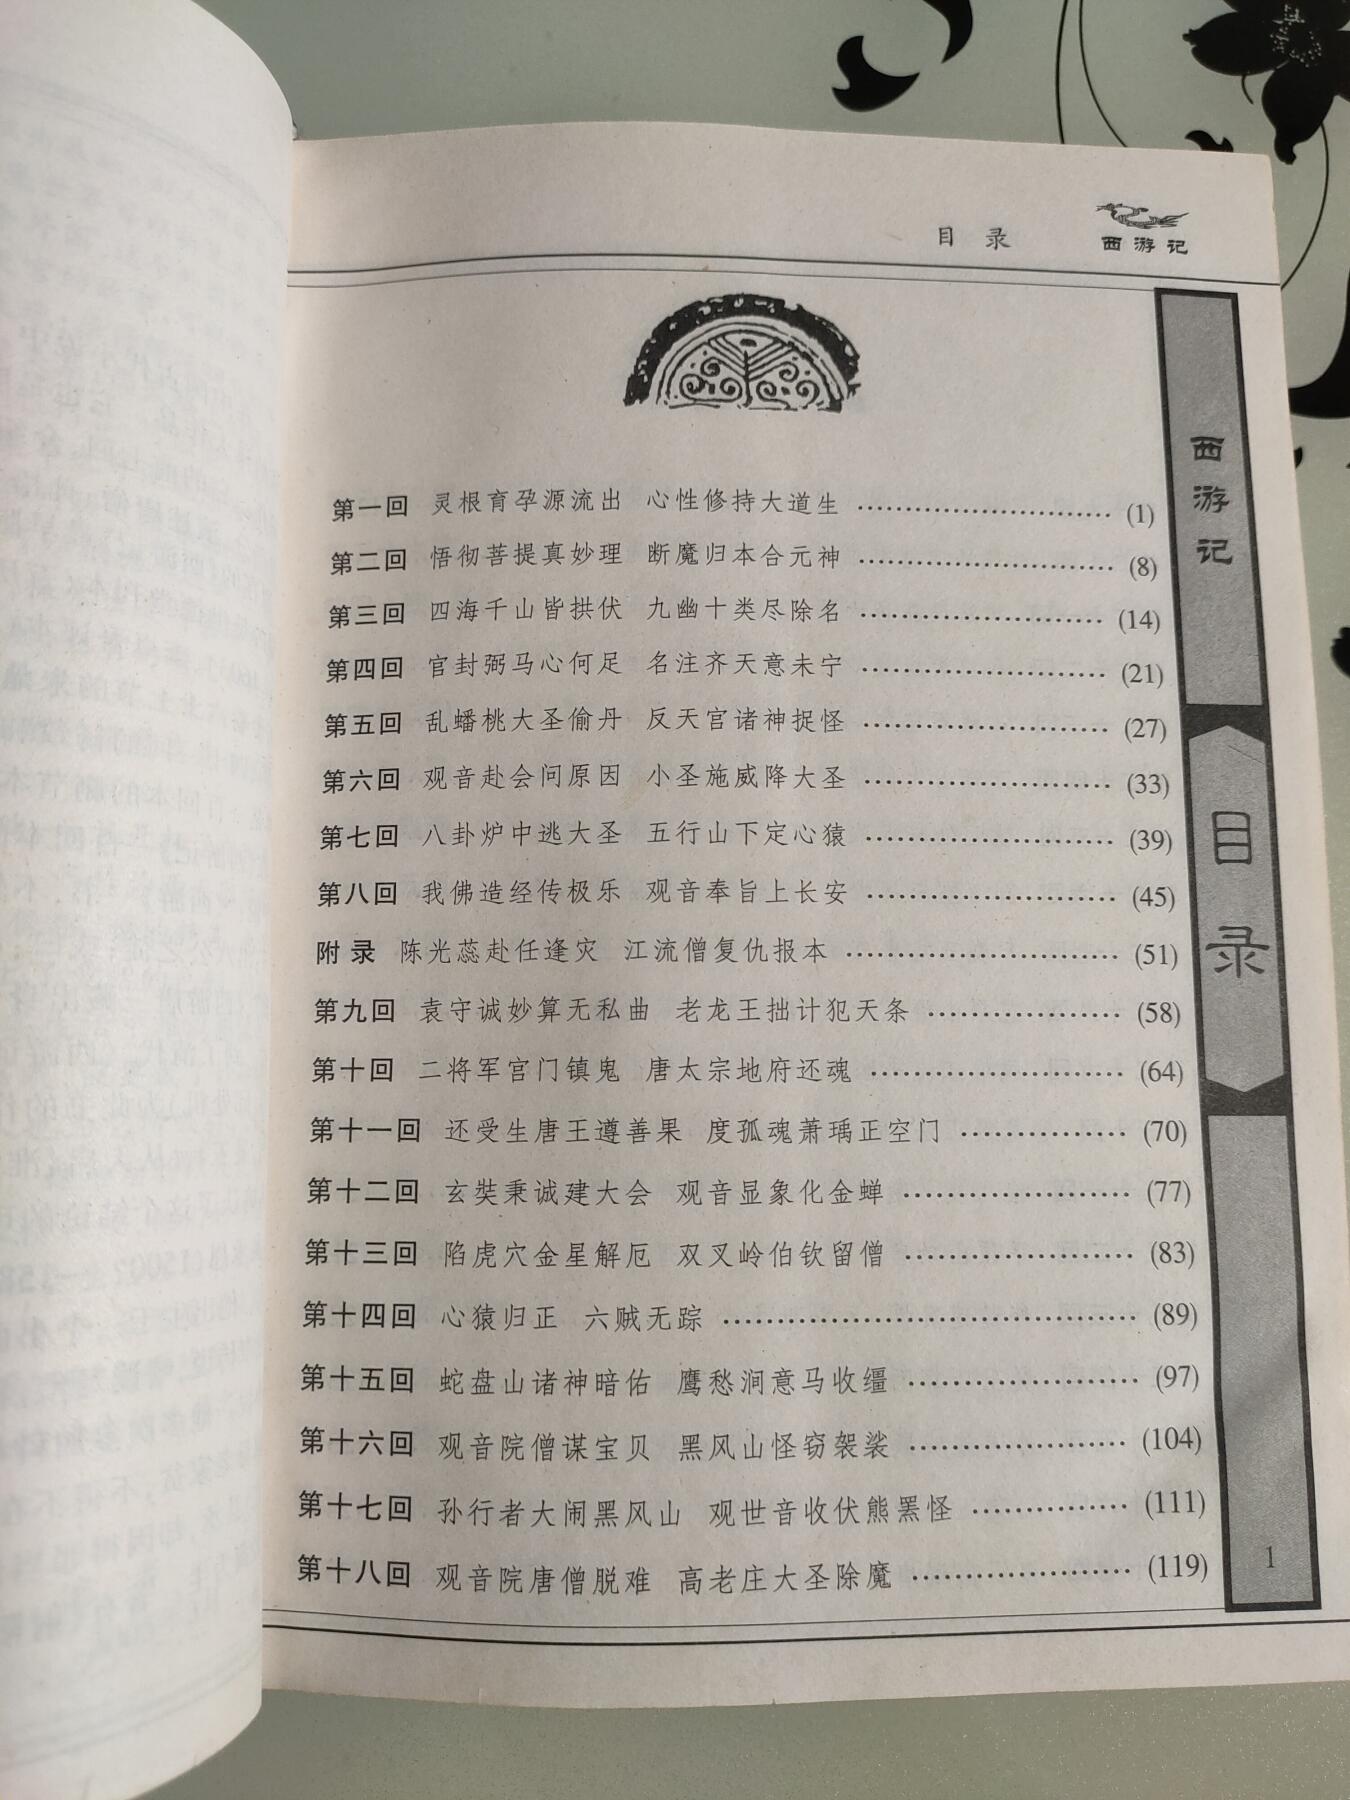 目 录
西游记
第一回 灵根育孕源流出 心性修持大道生 ………………………… (1)
第二回 悟彻菩提真妙理 断魔归本合元神 ………………………… (8)
第三回 四海千山皆拱伏 九幽十类尽除名 ………………………… (14)
第四回 官封弼马心何足 名注齐天意未宁 ………………………… (21)
第五回 乱蟠桃大圣偷丹 反天宫诸神捉怪 ………………………… (27)
第六回 观音赴会问原因 小圣施威降大圣 ………………………… (33)
第七回 八卦炉中逃大圣 五行山下定心猿 ………………………… (39)
第八回 我佛造经传极乐 观音奉旨上长安 ………………………… (45)
附 录 陈光蕊赴任逢灾 江流僧复仇报本 ………………………… (51)
第九回 袁守诚妙算无私曲 老龙王拙计犯天条 ………………… (58)
第十回 二将军宫门镇鬼 唐太宗地府还魂 ………………………… (64)
第十一回 还受生唐王遵善果 度孤魂萧瑀正空门 ……………… (70)
第十二回 玄奘秉诚建大会 观音显象化金蝉 …………………… (77)
第十三回 陷虎穴金星解厄 双叉岭伯钦留僧 …………………… (83)
第十四回 心猿归正 六贼无踪 …………………………………… (89)
第十五回 蛇盘山诸神暗佑 鹰愁涧意马收缰 …………………… (97)
第十六回 观音院僧谋宝贝 黑风山怪窃袈裟 …………………… (104)
第十七回 孙行者大闹黑风山 观世音收伏熊罴怪 ……………… (111)
第十八回 观音院唐僧脱难 高老庄大圣除魔 …………………… (119)
西游记
目录
1